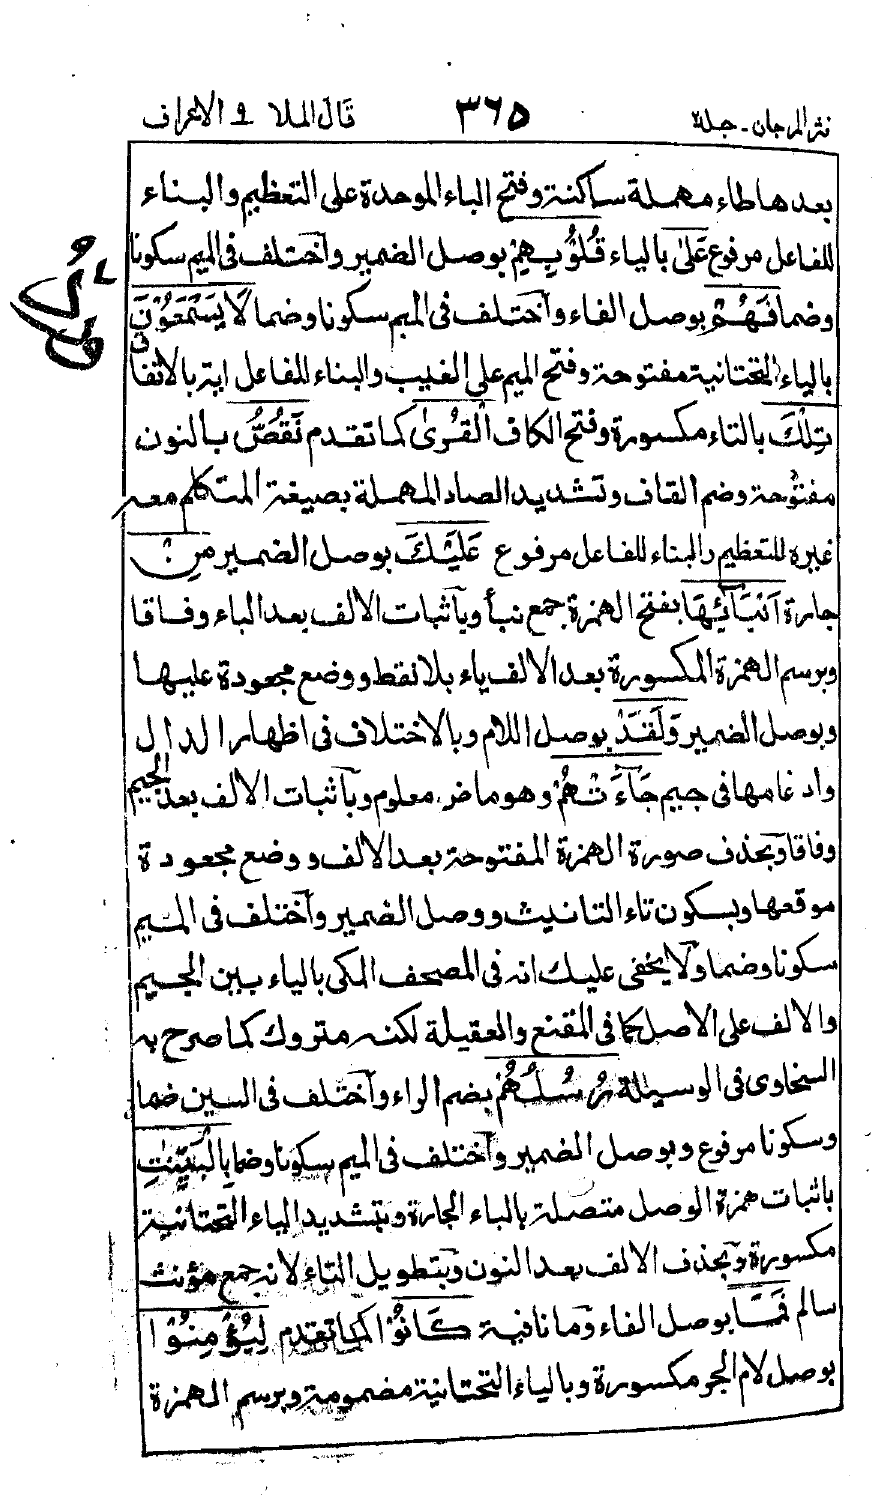 نثر المرجان - جلة ٣٦٥ قال الملا و الاعراف
بعدها طاء مهملة ساكنة وفتح الباء الموحدة على التعظيم والبناء
للفاعل مرفوع عَلىٰ بالياء قُلُوْبِهِمْ بوصل الضمير واختلف فى الميم سكونا
وضما فَهُمْ بوصل الفاء واختلف فى الميم سكونا وضما لَا يَسْمَعُوْنَ
بالياء التحتانية مفتوحة وفتح الميم على الغيب والبناء للفاعل اية بالاتفاق
تِلْكَ بالتاء مكسورة وفتح الكاف الْقُرىٰ كما تقدم نَقُصُّ بالنون
مفتوحة وضم القاف وتشديد الصاد المهملة بصيغة المتكلم معه
غيره للتعظيم والبناء للفاعل مرفوع عَلَيْكَ بوصل الضمير مِنْ
جارة اَنْبَآئِهَا بفتح الهمزة جمع نبأ وباثبات الالف بعد الباء وفاقا
وبرسم الهمزة المكسورة بعد الالف ياء بلا نقط ووضع مجعودة عليها
وبوصل الضمير وَلَقَدْ بوصل اللام وبالاختلاف فى اظهار الدال
وادغامها فى جيم جَآءَتْهُمْ وهو ماض معلوم وباثبات الالف بعد الجيم
وفاقا وبحذف صورة الهمزة المفتوحة بعد الالف ووضع مجعودة
موقعها وبسكون تاء التانيث ووصل الضمير واختلف فى الميم
سكونا وضما ولا يخفى عليك انه فى المصحف المكى بالياء بين الجيم
والالف على الاصل كما فى المقنع والعقيلة لكنه متروك كما صرح به
السخاوى فى الوسيلة رُسُلُهُمْ بضم الراء واختلف فى السين ضما
وسكونا مرفوع وبوصل الضمير واختلف فى الميم سكونا وضما بِالْبَيِّنٰتِ
باثبات همزة الوصل متصلة بالباء الجارة وبتشديد الياء التحتانية
مكسورة وبحذف الالف بعد النون وبتطويل التاء لانه جمع مؤنث
سالم فَمَا بوصل الفاء وما نافية كَانُوْا كما تقدم لِيُؤْمِنُوْا
بوصل لام الجر مكسورة وبالياء التحتانية مضمومة وبرسم الهمزة